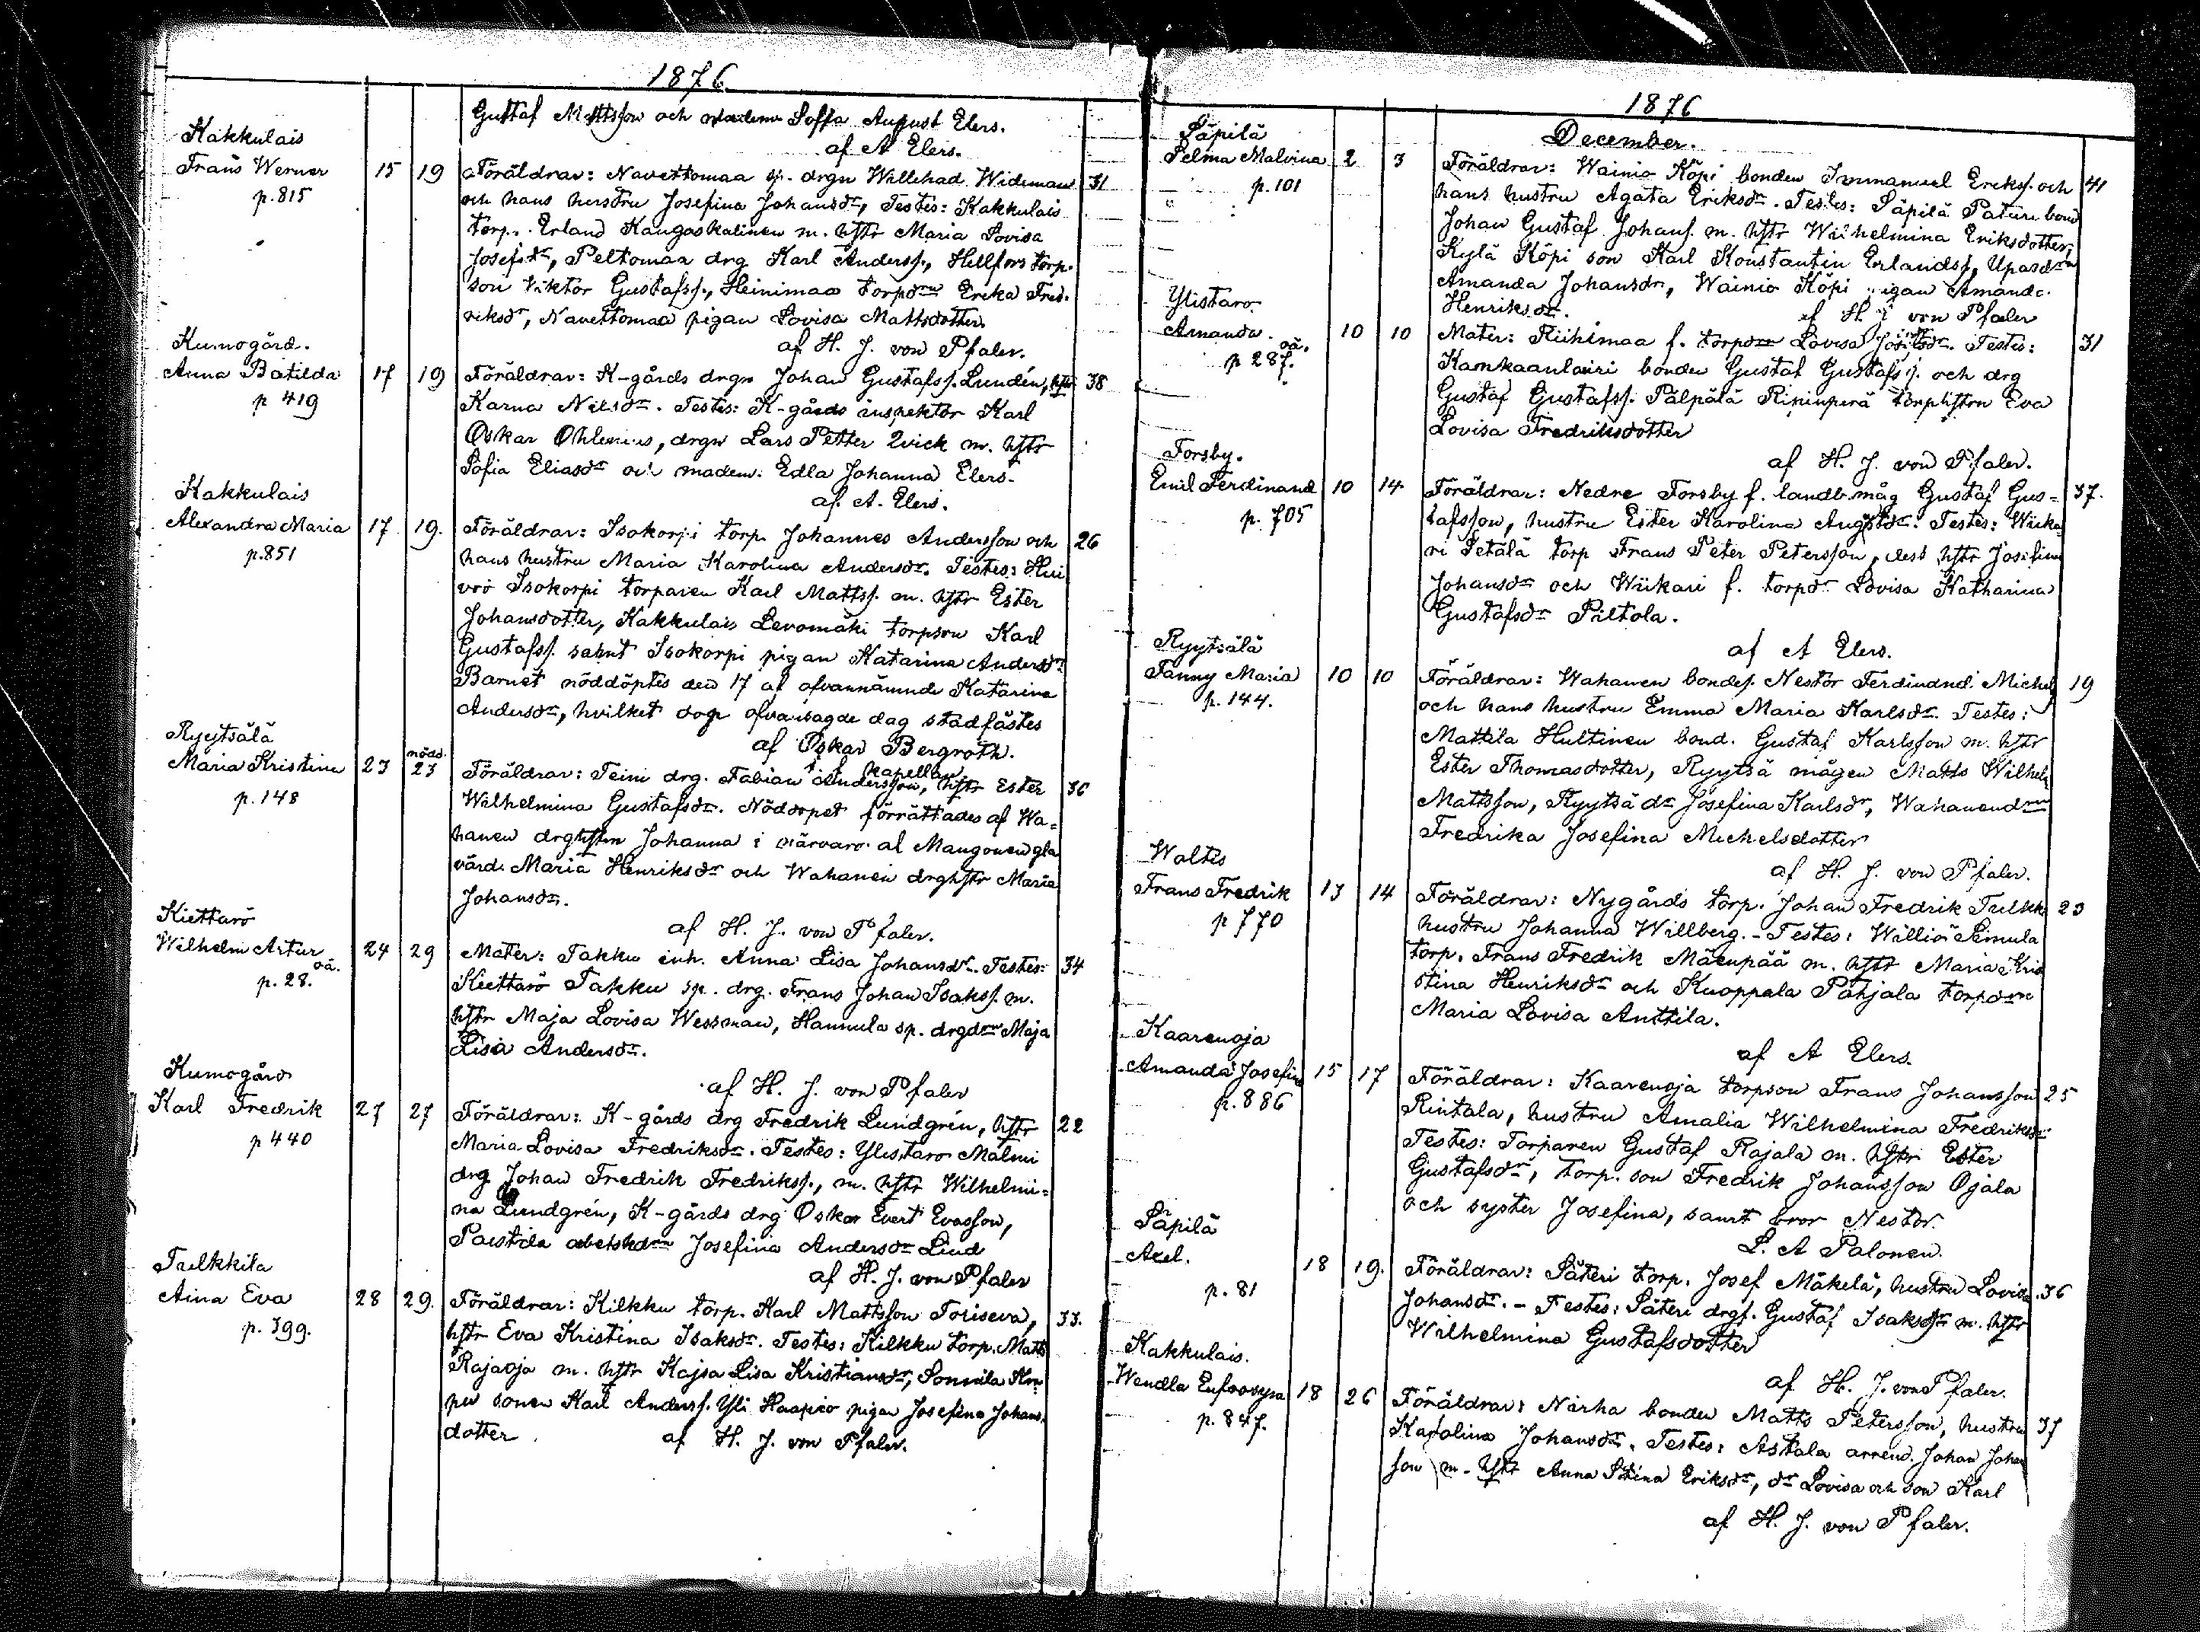 1876
Gustaf Mattsson och Sofia August Elers.
af A Elers.
Kakkulais
Frans Werner 15 19 Föräldrar: Navettomaa sp. drgn Willehad Wideman 31
p. 815 och hans hustru Josefina Johansdr, Testes: Kakkulais
torp. Erland Kangaskalinen m. hstr Maria Lovisa
Josefsdr, Peltomaa drg Karl Anderss., Hellfors torp.
son Viktor Gustafss., Heinimaa torpdrn Erika Fred-
riksdr, Navettomaa pigan Lovisa Mattsdotter.
af H. J. von Pfaler.
Kumogård.
Anna Batilda 17 19 Föräldrar: K-gårds drgn Johan Gustafss. Lundén, hstr 38
p 419 Karna Nilsdr. Testes: K-gårds inspektor Karl
Oskar Ohlenius, drgn Lars Petter Qvick m. hstr
Sofia Eliasdr och madem. Edla Johanna Elers.
af A. Elers.
Kakkulais
Alexandra Maria 17 19. Föräldrar: Isokorpi torp. Johannes Andersson och 26
p. 851 hans hustru Maria Karolina Andersdr. Testes: Hui
voo Isokorpi torparen Karl Mattss. m. hstr Ester
Johansdotter, Kakkulais Levomäki torpson Karl
Gustafss. samt Isokorpi pigan Katarina Andersdr.
Barnet nöddöptes den 17 af ofvannämnde Katarina
Andersdr, hvilket dop ofvansagde dag stadfästes
af Oskar Bergroth.
kapellan
Ryytsälä nödd.
Maria Kristina 23 23 Föräldrar: Teini drg. Fabian Andersson, hstr Ester 36
p. 148 Wilhelmina Gustafsdr. Nöddopet förrättades af Wa-
hanen drghstrn Johanna i närvaro af Mangonen gla
värd. Maria Henriksdr och Wahanen drghstr Maria
Johansdr.
af H. J. von Pfaler.
Kiettarö
Wilhelm Artur 24 29 Mater: Takku inh. Anna Lisa Johansdr. Testes: 34
oä.
p. 28. Kiettarö Takku sp. drg. Frans Johan Isakss. m.
hstr Maja Lovisa Wessman, Hannula sp. drgdrn Maja
Lisa Andersdr.
af H. J. von Pfaler
Kumogård
Karl Fredrik 27 27 Föräldrar: K-gårds drg Fredrik Lundgrén, hstr 22
p 440 Maria Lovisa Fredriksdr. Testes: Ylistaro Malmi
drg Johan Fredrik Fredrikss., m. hstr Wilhelmi-
na Lundgrén, K-gårds drg Oskar Evert Evasson,
Paistila Josefina Andersdr Lind
af H. J. von Pfaler
Tulkkila
Aina Eva 28 29. Föräldrar: Kilkku torp. Karl Mattsson Toriseva, 33.
p. 399. hstr Eva Kristina Isaksdr. Testes: Kilkku torp. Matts
Rajaoja m. hstr Kajsa Lisa Kristiansdr, Sonnila
sonen Karl Anderss. Yli Haapio pigan Josefina Johans-
dotter
af H. J. von Pfaler.
1876
December.
Säpilä
Selma Malvina 2 3 Föräldrar: Wainio Köpi bonden Immanuel Erikss. och 41
p. 101 hans hustru Agata Eriksdr. Testes: Säpilä Paturi bond
Johan Gustaf Johanss. m. hstr Wilhelmina Eriksdotter,
Kylä Köpi son Karl Konstantin Erlandss., Upasdrn
Amanda Johansdr, Wainio Köpi pigan Amanda
Henriksdr.
af H. J von Pfaler
Ylistaro.
Amanda. 10 10 Mater: Riihimaa f. torpdrn Lovisa Josefsdr. Testes: 31
oä.
p 287. Kamkaanlauri bonden Gustaf Gustafss. och drg
Gustaf Gustafss. Pälpälä Ripinperä torphstrn Eva
Lovisa Fredriksdotter
af H. J. von Pfaler.
Forsby.
Emil Ferdinand 10 14. Föräldrar: Nedre Forsby f. landb. måg Gustaf Gus- 37.
p. 705 tafsson, hustru Ester Karolina Augustdr. Testes: Wiika-
ri Setälä torp Frans Peter Petersson, dess hstr Josefina
Johansdr och Wiikari f. torpdr Lovisa Katharina
Gustafsdr Piltola.
af A Elers.
Ryytsälä
Fanny Maria 10 10 Föräldrar: Wahanen bondes. Nestor Ferdinand Michels 19
p. 144. och hans hustru Emma Maria Karlsdr. Testes:
Mattila Hultinen bond. Gustaf Karlsson m. hstr
Ester Thomasdotter, Ryytsä mågen Matts Wilhelm
Mattsson, Ryytsä dr Josefina Karlsdr, Wahanendrn
Fredrika Josefina Michelsdotter
af H. J. von Pfaler.
Waltis
Frans Fredrik 13 14 Föräldrar: Nygårds torp. Johan Fredrik Tulkki 23
p 770 hustru Johanna Willberg. - Testes: Willio Simula
torp. Frans Fredrik Mäenpää m. hstr Maria Kris
stina Henriksdr och Kuoppala Pohjala torpdrn
Maria Lovisa Anttila.
af A Elers.
Kaarenoja
Amanda Josefin 15 17 Föräldrar: Kaarenoja torpson Frans Johansson 25
p. 886 Rintala, hustru Amalia Wilhelmina Fredriksdr
Testes: Torparen Gustaf Rajala m. hstr Ester
Gustafsdr, torp. son Fredrik Johansson Ojala
och syster Josefina, samt bror Nestor.
L. A Palonen.
Säpilä
Axel. 18 19. Föräldrar: Säteri torp. Josef Mäkelä, hustru Lovisa 36
p. 81 Johansdr. - Testes: Säteri drgs. Gustaf Isakss. m. hstr
Wilhelmina Gustafsdotter
af H. J. von Pfaler.
Kakkulais.
Wendla Eufrosyna 18 26 Föräldrar: Närha bonden Matts Petersson, hustru 37
p. 847. Karolina Johansdr. Testes: Astala arrend. Johan Johan
son m. hstr Anna Stina Eriksdr, dr Lovisa och son Karl
af H. J. von Pfaler.